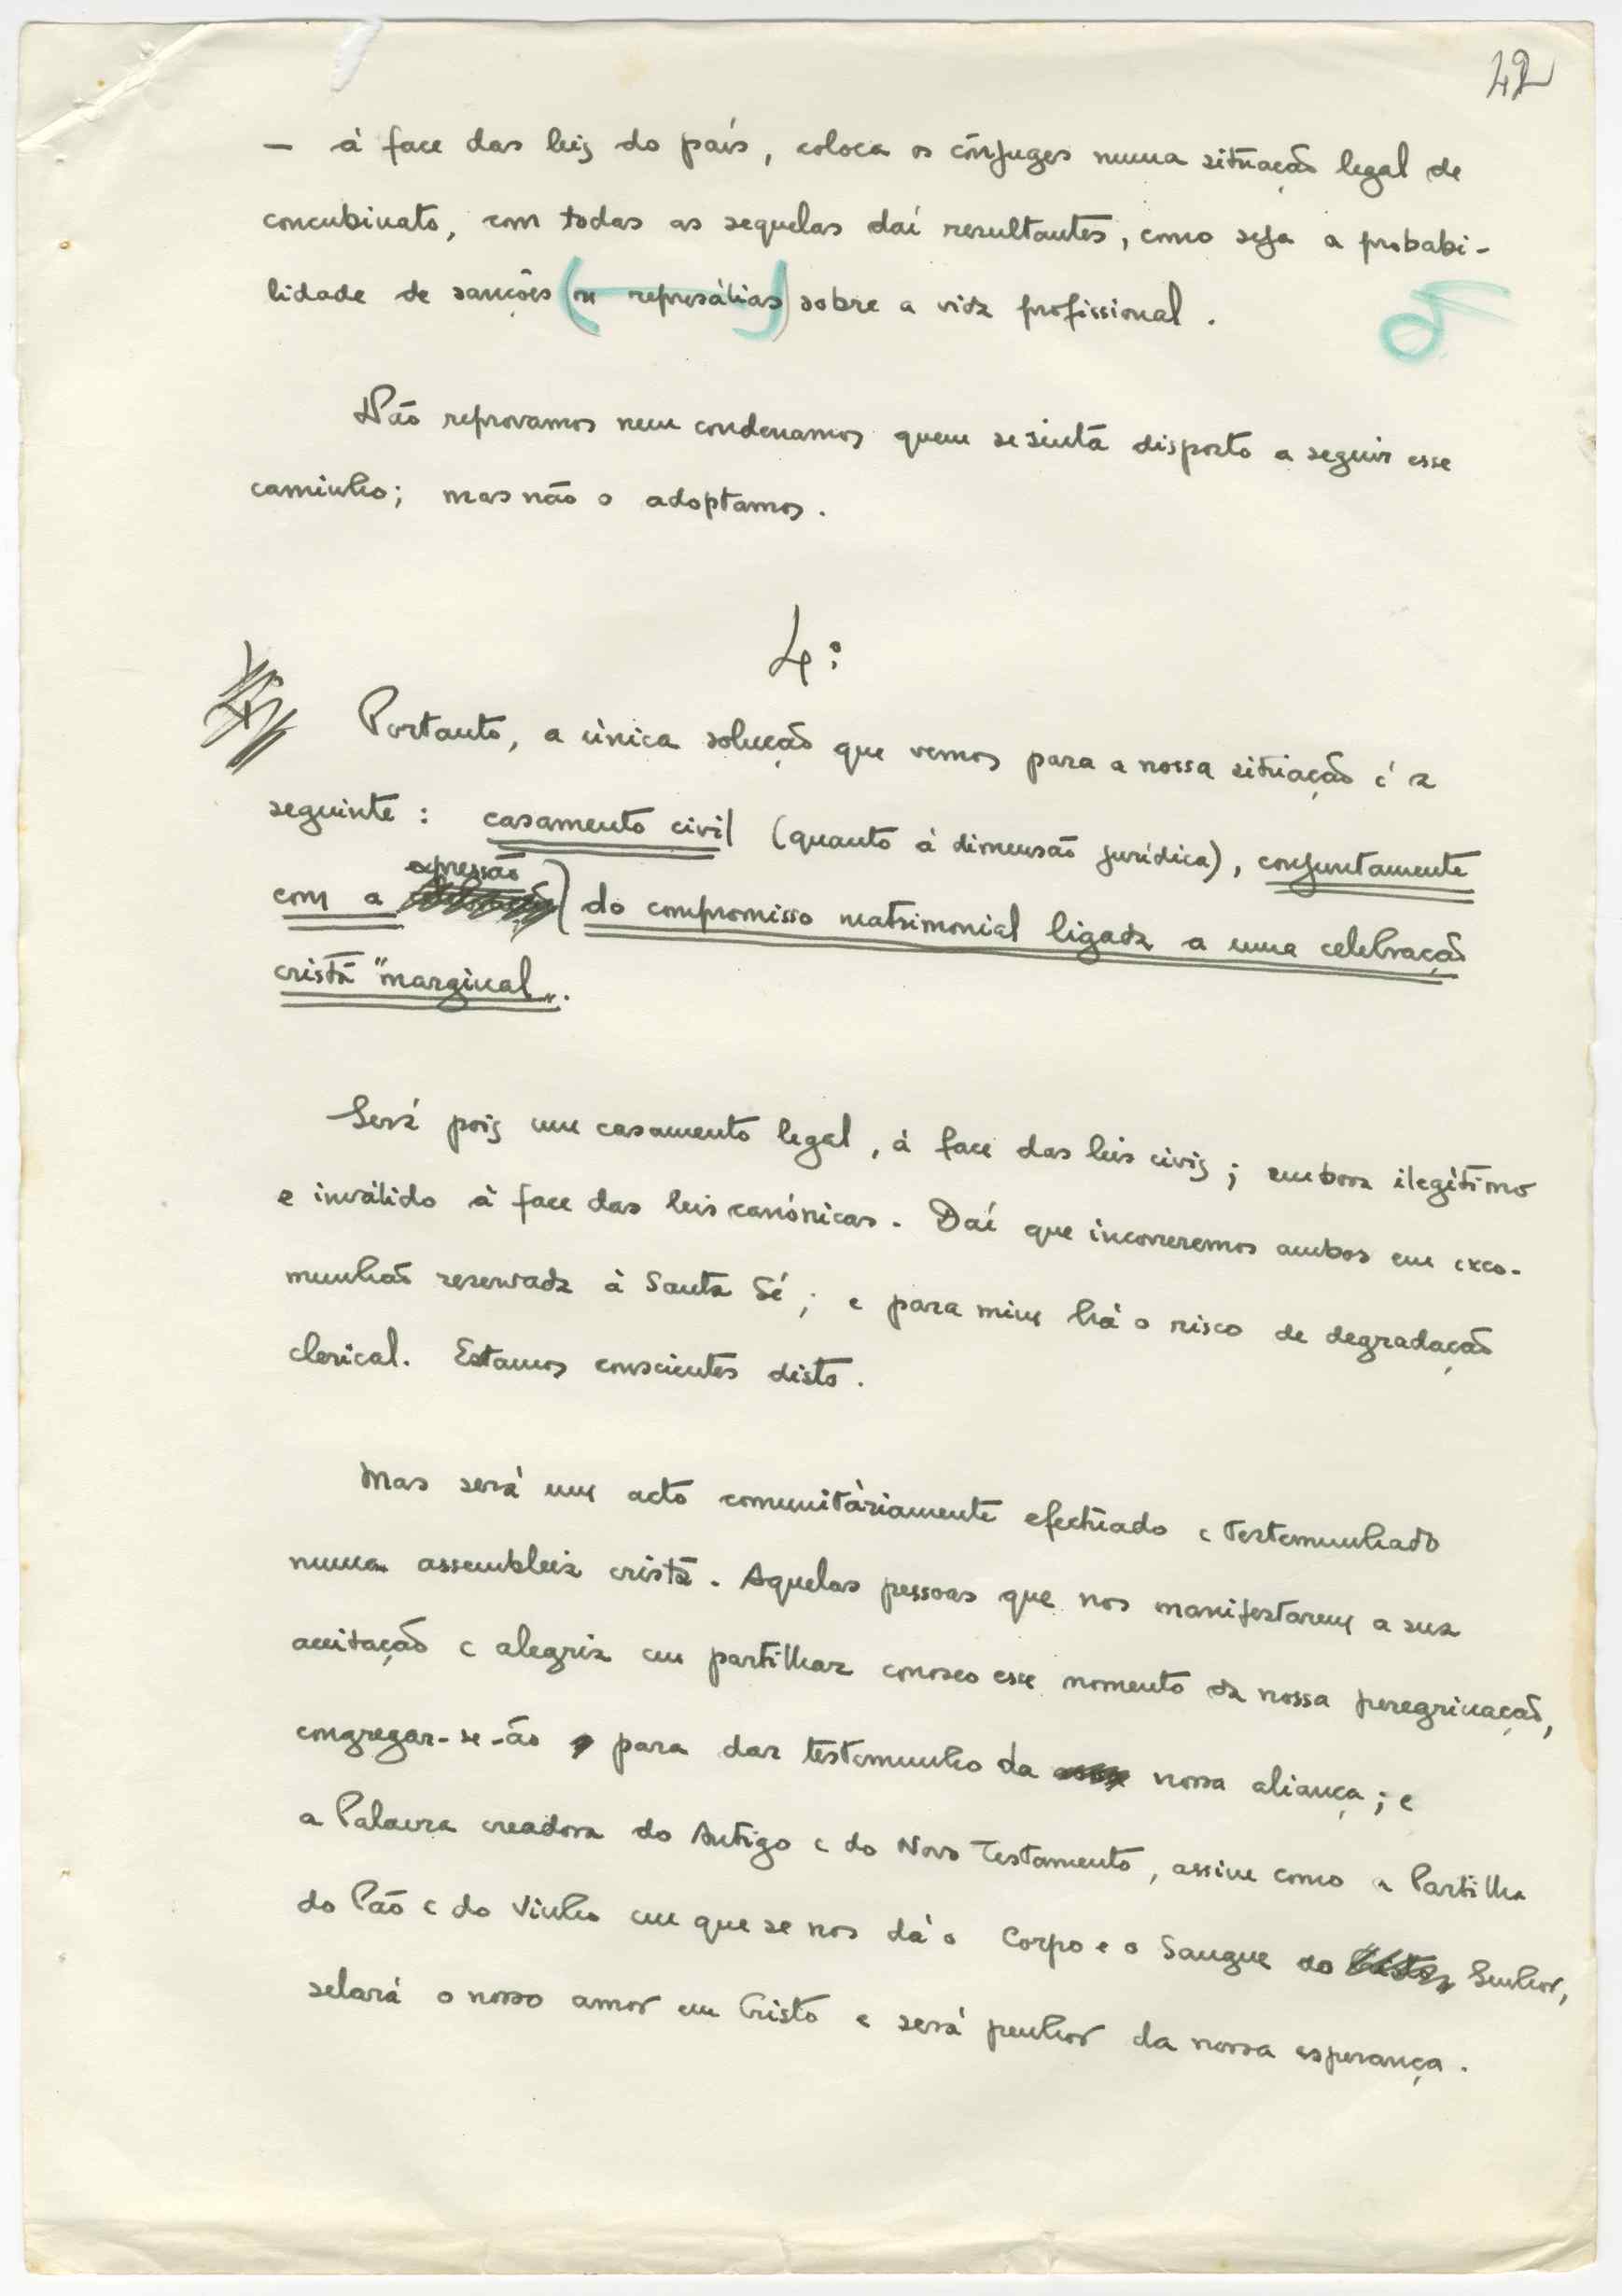 42
— à face das leis do país, coloca os cônjuges numa situação legal de
concubinato, com todas as sequelas daí resultantes, como seja a probabi-
lidade de sanções (ou represálias) sobre a vida profissional.
Não reprovamos nem condenamos quem se sinta disposto a seguir esse
caminho; mas não o adoptamos.
4:
Portanto, a única solução que vemos para a nossa situação é a
seguinte: casamento civil (quanto à dimensão jurídica), conjuntamente
expressão
com a do compromisso matrimonial ligada a uma celebração
cristã "marginal".
Será pois um casamento legal, à face das leis civis; embora ilegítimo
e inválido à face das leis canónicas. Daí que incorreremos ambos em exco-
munhão reservada à Santa Sé; e para mim há o risco de degradação
clerical. Estamos conscientes disto.
Mas será um acto comunitàriamente efectuado e testemunhado
numa assembleia cristã. Aquelas pessoas que nos manifestarem a sua
aceitação e alegria em partilhar conosco esse momento da nossa peregrinação,
congregar-se-ão para dar testemunho da nossa aliança; e
a Palavra creadora do Antigo e do Novo Testamento, assim como a Partilha
do Pão e do Vinho em que se nos dá o Corpo e o Sangue do Senhor,
selará o nosso amor em Cristo e será penhor da nossa esperança.